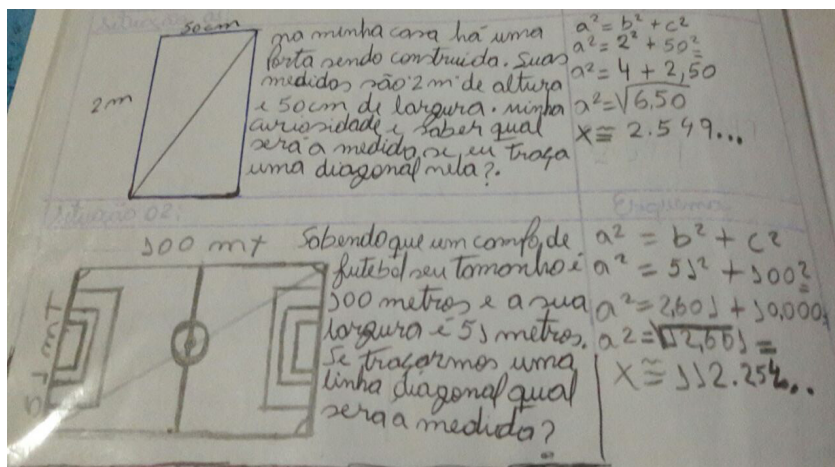 50cm
2m
na minha casa há uma
porta sendo construida. Suas
medidas são 2m de altura
e 50cm de largura. minha
curiosidade é saber qual
será a medida se eu traça
uma diagonal nela?.
a² = b² + c²
a² = 2² + 50²
a² = 4 + 2,50
a² = √6,50
x ≅ 2.549...
situação 02:
Esquema
100 mt
Sabendo que um campo de
futebol seu tamanho é
100 metros e a sua
largura é 51 metros.
Se traçarmos uma
linha diagonal qual
sera a medida?
a² = b² + c²
a² = 51² + 100²
a² = 2,601 + 10,000
x ≅ 112.254...